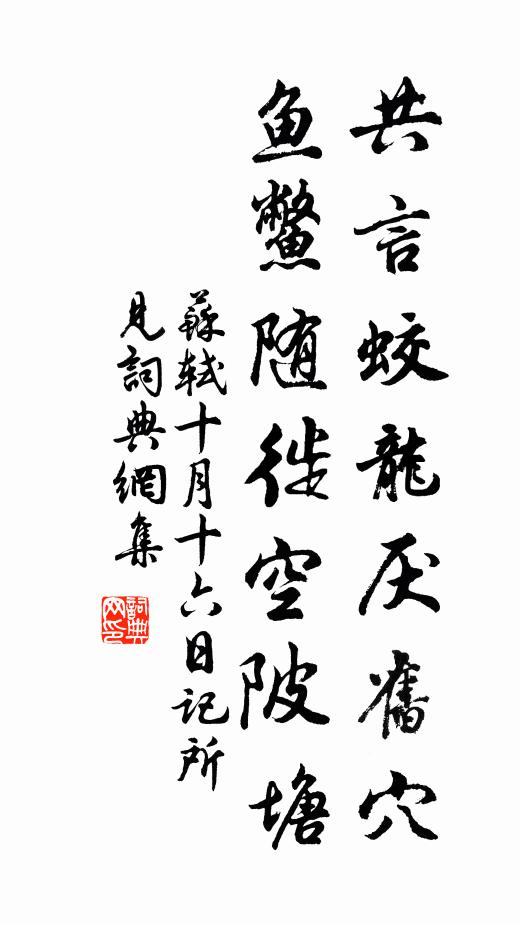 共言蛟龍厌舊穴
鱼鼈随徙空陂塘
蘇軾十月十六日記所
見詞典網集
詞典
网印